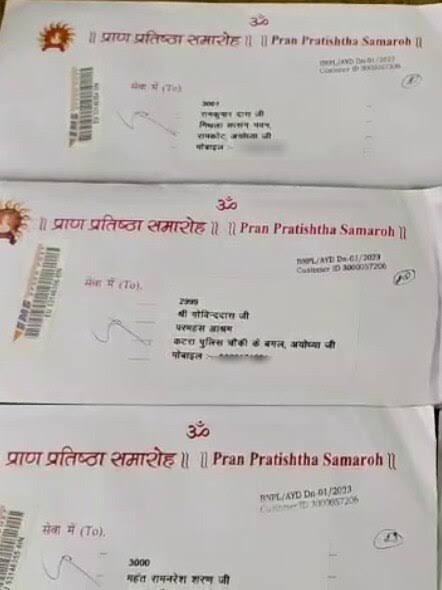 ॐ
॥ प्राण प्रतिष्ठा समारोह ॥ ॥ Pran Pratishtha Samaroh ॥
BNPL/AYD Dn-01/2023
Customer ID 3000057206
सेवा में (To).
3001
रामकुमार दास जी
मिथला सत्संग भवन,
रामकोट, अयोध्या जी
मोबाइल :-
ॐ
॥ प्राण प्रतिष्ठा समारोह ॥ ॥ Pran Pratishtha Samaroh ॥
BNPL/AYD Dn-01/2023
Customer ID 3000057206
सेवा में (To).
2999
श्री गोविन्ददास जी
परमहंस आश्रम
कटरा पुलिस चौकी के बगल, अयोध्या जी
मोबाइल :-
ॐ
प्राण प्रतिष्ठा समारोह ॥ ॥ Pran Pratishtha Samaroh ॥
BNPL/AYD Dn-01/2023
Customer ID 3000057206
सेवा में (To).
3000
महंत रामनरेश शरण जी